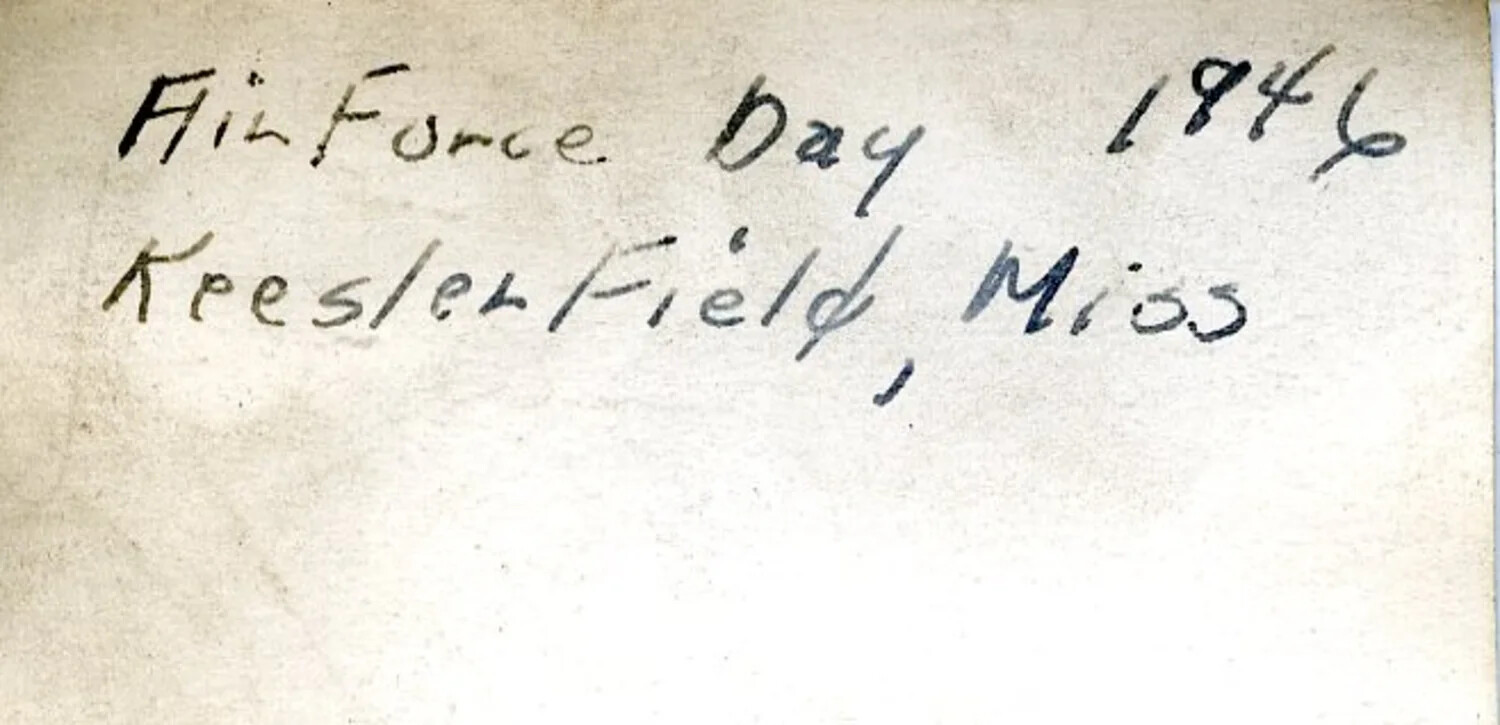 Air Force Day 1946
Keesler Field, Miss